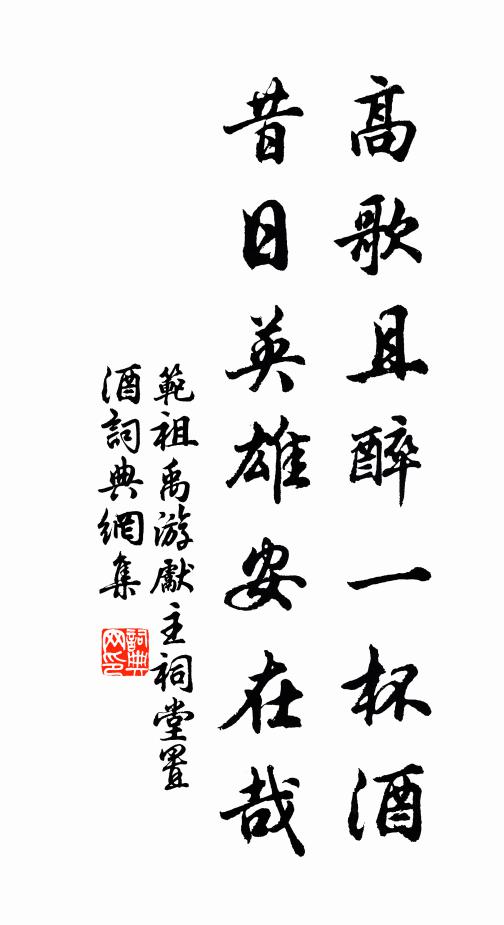 高歌且醉一杯酒
昔日英雄安在哉
範祖禹游獻主祠堂置
酒詞典網集
詞典网印